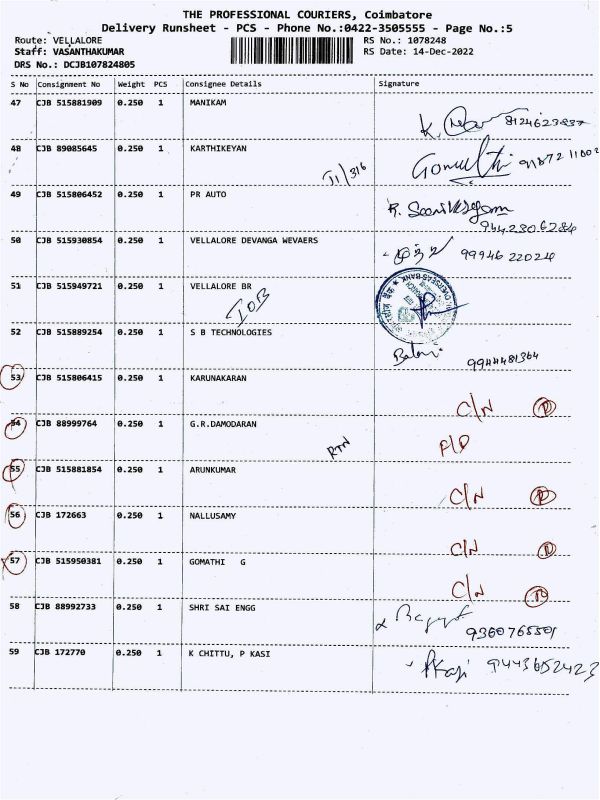 THE PROFESSIONAL COURIERS, Coimbatore
Delivery Runsheet - PCS - Phone No.:0422-3505555 - Page No.:5
Route: VELLALORE RS No.: 1078248
Staff: VASANTHAKUMAR RS Date: 14-Dec-2022
DRS No.: DCJB107824805
S No Consignment No Weight PCS Consignee Details Signature
47 CJB 515881909 0.250 1 MANIKAM
K. 8124623837
48 CJB 89085645 0.250 1 KARTHIKEYAN
II/316 Gomathi
49 CJB 515806452 0.250 1 PR AUTO
R.
9442306284
50 CJB 515930854 0.250 1 VELLALORE DEVANGA WEVAERS
99946 22024
51 CJB 515949721 0.250 1 VELLALORE BR
IOB
OVERSEAS BANK
52 CJB 515889254 0.250 1 S B TECHNOLOGIES
Balaji 9944481364
53 CJB 515806415 0.250 1 KARUNAKARAN
C/N D
54 CJB 88999764 0.250 1 G.R.DAMODARAN
RTN P/D
55 CJB 515881854 0.250 1 ARUNKUMAR
C/N D
56 CJB 172663 0.250 1 NALLUSAMY
C/N D
57 CJB 515950381 0.250 1 GOMATHI G
C/N D
58 CJB 88992733 0.250 1 SHRI SAI ENGG
9360765501
59 CJB 172770 0.250 1 K CHITTU, P KASI
PKasi 9443652423